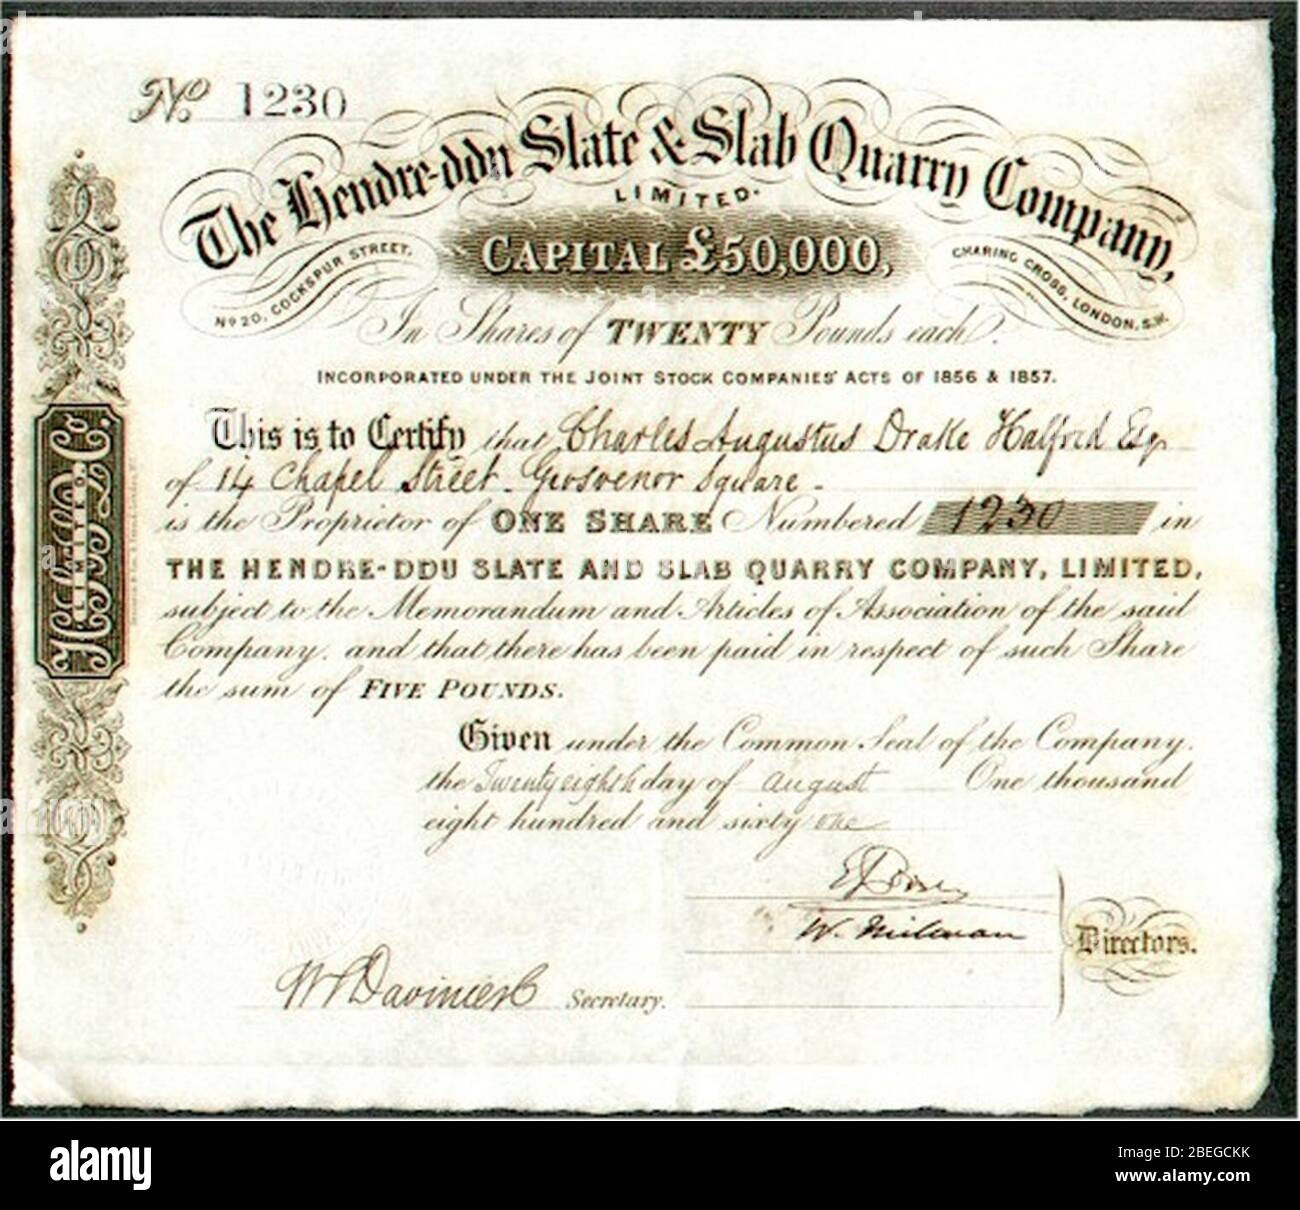 No 1230
The Hendre-ddu Slate & Slab Quarry Company,
LIMITED.
No 20, COCKSPUR STREET,
CAPITAL £50,000,
CHARING CROSS, LONDON, S.W.
In Shares of TWENTY Pounds each.
INCORPORATED UNDER THE JOINT STOCK COMPANIES' ACTS OF 1856 & 1857.
This is to Certify that Charles Augustus Drake Halford Esq
of 14 Chapel Street - Grosvenor Square -
is the Proprietor of ONE SHARE Numbered 1230 in
THE HENDRE-DDU SLATE AND SLAB QUARRY COMPANY, LIMITED,
subject to the Memorandum and Articles of Association of the said
Company, and that there has been paid in respect of such Share
the sum of FIVE POUNDS.
Given under the Common Seal of the Company,
the Twenty eighth day of august One thousand
eight hundred and sixty one
W. Milman
Directors.
Secretary.
LIMITED
alamy
Image ID: 2BEGCKK
www.alamy.com